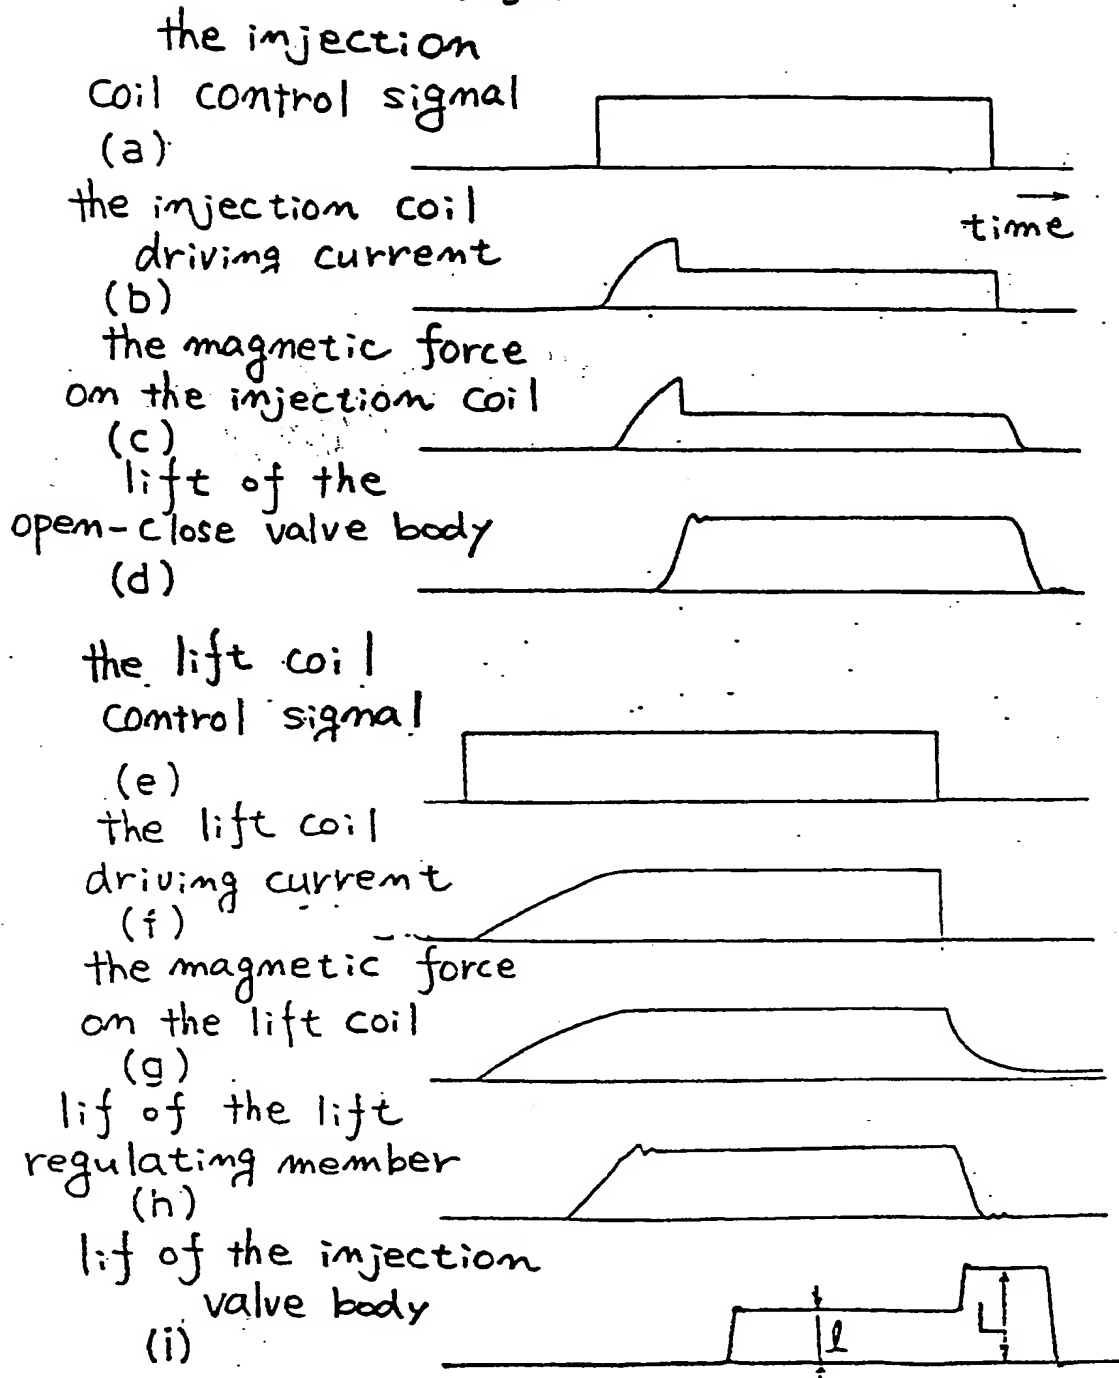 the injection
coil control signal
(a)
time
the injection coil
driving current
(b)
the magnetic force
on the injection coil
(c)
lift of the
open-close valve body
(d)
the lift coil
control signal
(e)
the lift coil
driving current
(f)
the magnetic force
on the lift coil
(g)
lif of the lift
regulating member
(h)
lif of the injection
valve body
(i)
l
L